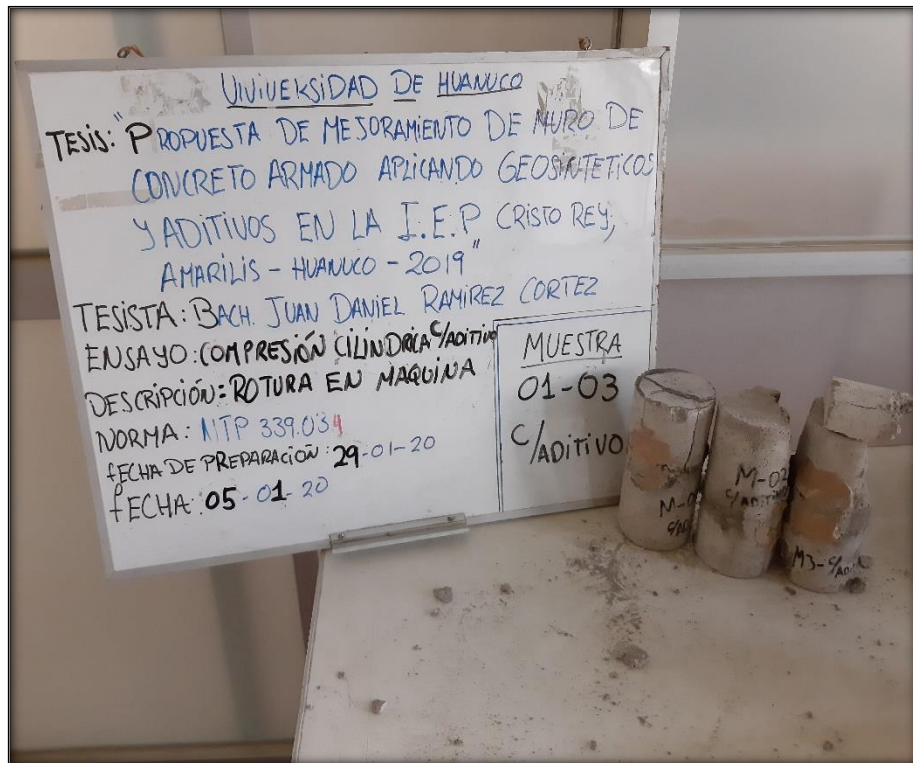 UNIVERSIDAD DE HUANUCO
TESIS: "PROPUESTA DE MEJORAMIENTO DE MURO DE
CONCRETO ARMADO APLICANDO GEOSINTETICOS
Y ADITIVOS EN LA I.E.P CRISTO REY,
AMARILIS - HUANUCO - 2019"
TESISTA: BACH. JUAN DANIEL RAMIREZ CORTEZ
ENSAYO: COMPRESIÓN CILINDRICA C/ADITIVO
DESCRIPCIÓN: ROTURA EN MAQUINA
NORMA: NTP 339.034
FECHA DE PREPARACIÓN: 29-01-20
FECHA: 05-01-20
MUESTRA
01-03
C/ADITIVO
M-02
C/ADITIVO
M3-C/ADIT